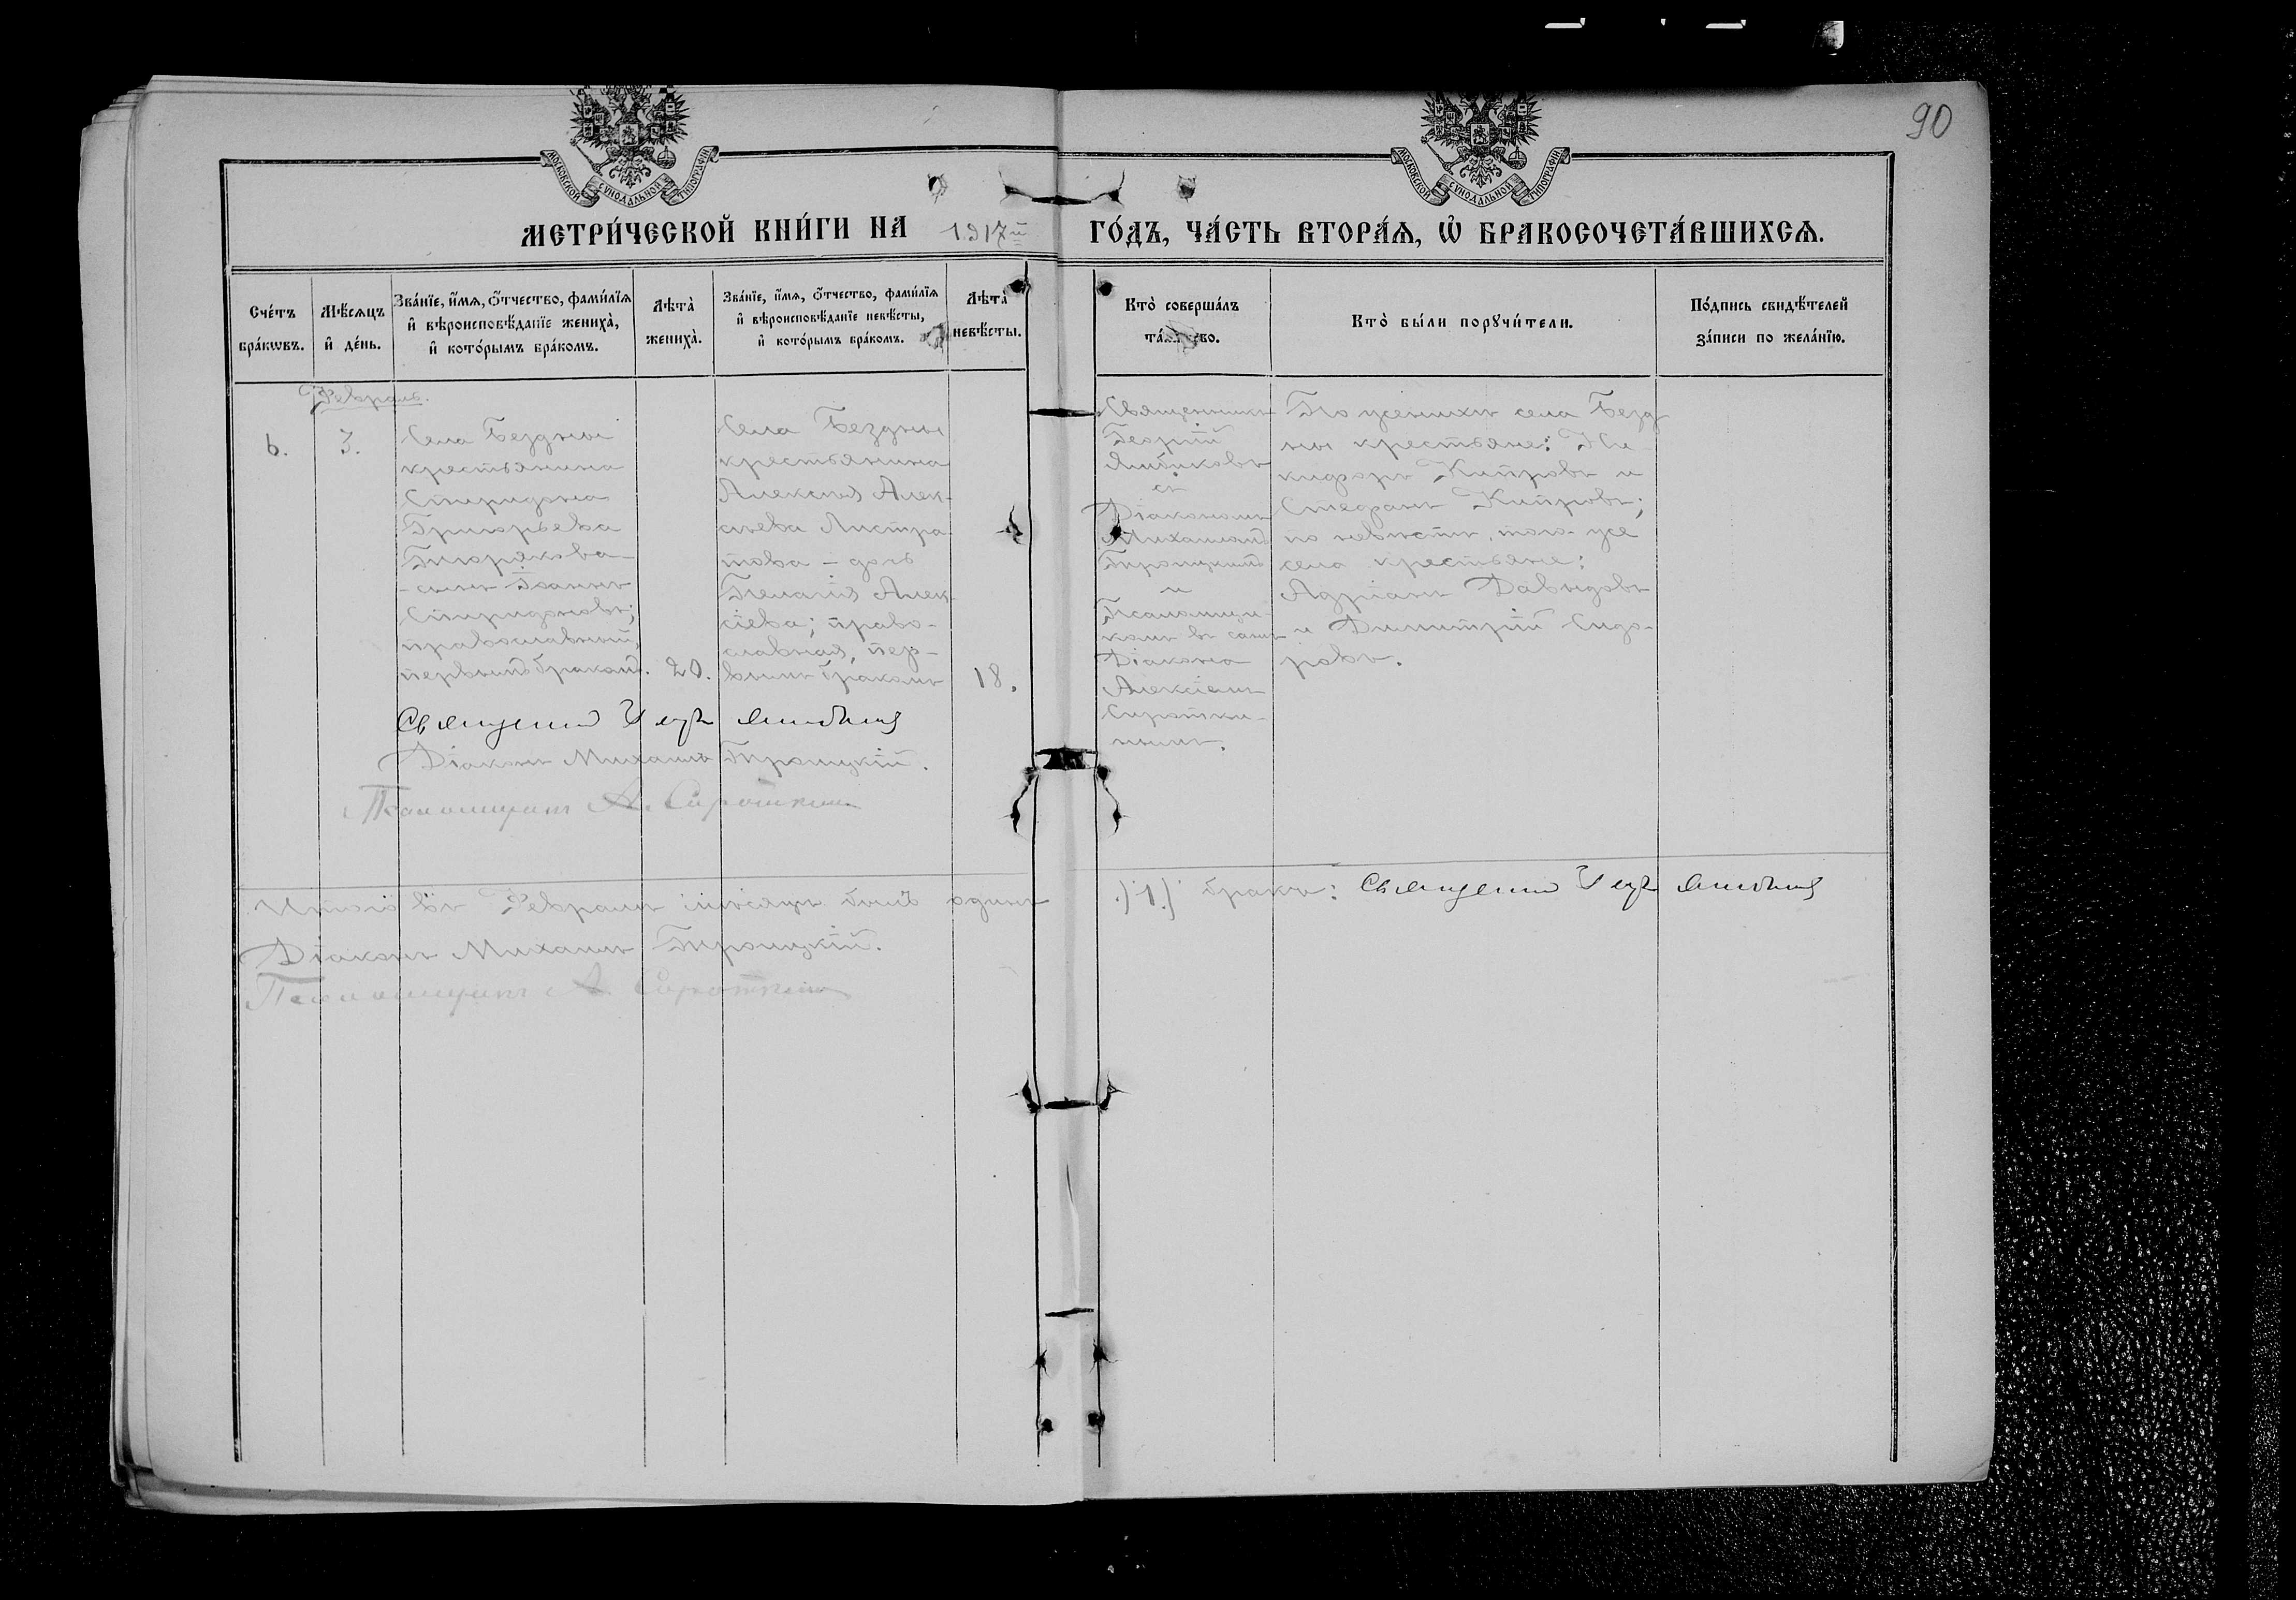 90
МОСКОВСКОЙ СѴНОДАЛЬНОЙ ТИПОГРАФІИ
МОСКОВСКОЙ СѴНОДАЛЬНОЙ ТИПОГРАФІИ
МЕТРИ́ЧЕСКОЙ КНИ́ГИ НА 1917й ГО́ДЪ, ЧА́СТЬ ВТОРА́Ѧ, Ѡ҆ БРАКОСОЧЕТА́ВШИХСѦ.
Сче́тъ
бра́кѡвъ.
Мѣ́сѧцъ
и҆ де́нь.
Зва́нїе, и҆́мѧ, ѻ҆́тчество, фами́лїѧ
и҆ вѣроисповѣ́данїе жениха̀,
и҆ кото́рымъ бра́комъ.
Лѣта̀
жениха̀.
Зва́нїе, и҆́мѧ, ѻ҆́тчество, фами́лїѧ
и҆ вѣроисповѣ́данїе невѣ́сты,
и҆ кото́рымъ бра́комъ.
Лѣта̀
невѣ́сты.
Кто̀ соверша́лъ
та́инство.
Кто̀ бы́ли порꙋчи́тели.
По́дпись свидѣ́телей
за́писи по жела́нїю.
Февраль.
6.
3.
Села Бездны
крестьянина
Спиридона
Григорьева
сынъ Іоаннъ
Спиридоновъ;
православный,
первымъ бракомъ.
20.
Села Бездны
крестьянина
Алексѣя Алек-
сѣева Листра-
това - дочь
Пелагія Алек-
сіева; право-
славная, пер-
вымъ бракомъ
18.
Священникъ
Георгій
съ
Діакономъ
Михаиломъ
Троицкимъ
и
Псаломщи-
комъ въ санѣ
Діакона
Алексіемъ
Сироткинымъ.
По женихѣ села Безд
ны крестьяне: Ни-
кифоръ Китровъ и
Стефанъ Китровъ;
по невѣстѣ, того-же
села крестьяне:
Адріанъ Давыдовъ
и Димитрій Сидо-
ровъ.
Діаконъ Михаилъ Троицкій.
Псаломщикъ А. Сироткинъ
Итого въ Февралѣ мѣсяцѣ былъ одинъ (1) бракъ:
Діаконъ Михаилъ Троицкій.
Псаломщикъ А. Сироткинъ